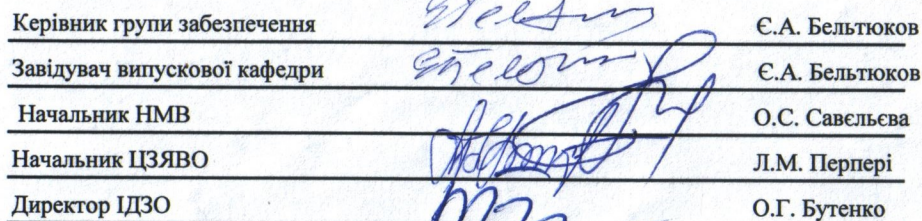 Керівник групи забезпечення Є.А. Бельтюков
Завідувач випускової кафедри Є.А. Бельтюков
Начальник НМВ О.С. Савєльєва
Начальник ЦЗЯВО Л.М. Перпері
Директор ІДЗО О.Г. Бутенко